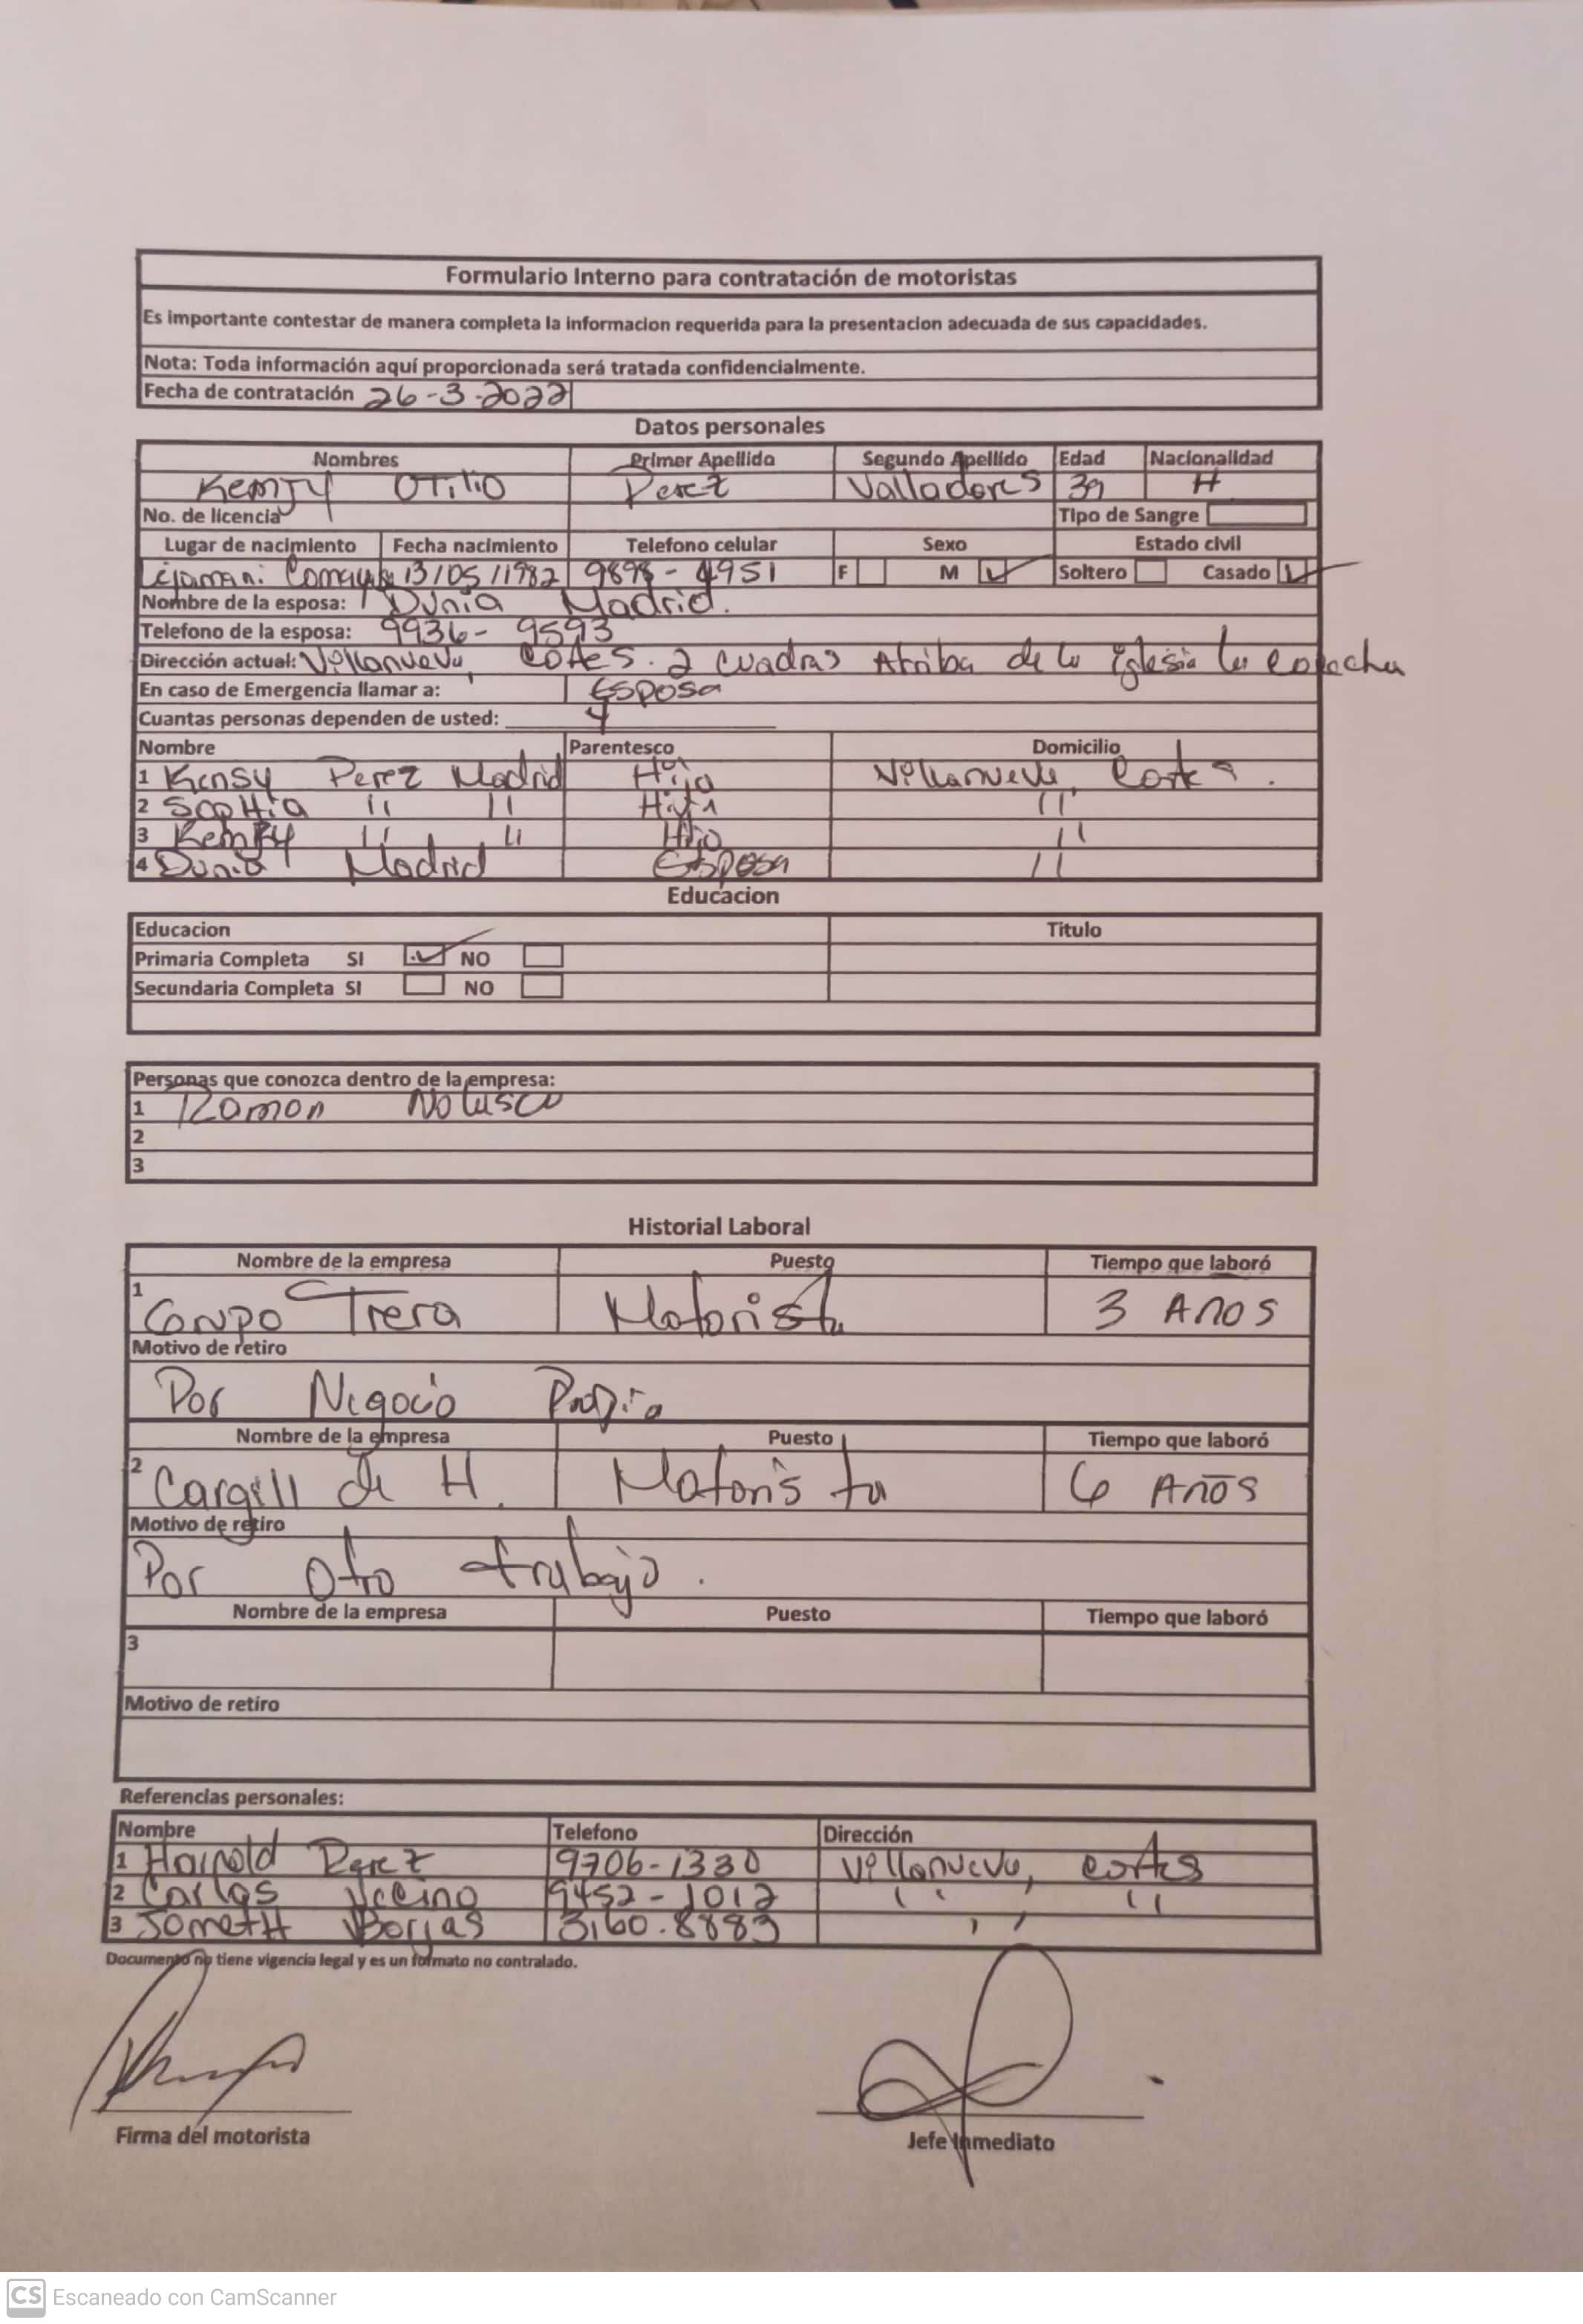 Formulario Interno para contratación de motoristas
Es importante contestar de manera completa la informacion requerida para la presentacion adecuada de sus capacidades.
Nota: Toda información aquí proporcionada será tratada confidencialmente.
Fecha de contratación 26-3-2022
Datos personales
Nombres Primer Apellido Segundo Apellido Edad Nacionalidad
Kemfy Otilio Perez Valladores 39 H
No. de licencia Tipo de Sangre
Lugar de nacimiento Fecha nacimiento Telefono celular Sexo Estado civil
Lejamani 13/05/1982 F M Soltero Casado
Nombre de la esposa: Dunia Madrid.
Telefono de la esposa: 9936-9593
Dirección actual: Villanueva, Cortes. 2 cuadras Arriba de la iglesia la cosecha
En caso de Emergencia llamar a: Esposa
Cuantas personas dependen de usted: 4
Nombre Parentesco Domicilio
1 Kensy Perez Madrid Hija Villanueva, Cortes.
2 Sophia 11 11 Hija 11
3 11 11 Hijo 11
4 Dunia Madrid Esposa 11
Educacion
Educacion Titulo
Primaria Completa SI NO
Secundaria Completa SI NO
Personas que conozca dentro de la empresa:
1 Ramon Nolasco
2
3
Historial Laboral
Nombre de la empresa Puesto Tiempo que laboró
1 Trera Motorista 3 Años
Motivo de retiro
Por Negocio Propio
Nombre de la empresa Puesto Tiempo que laboró
2 Cargill de H. Motorista 6 Años
Motivo de retiro
Por otro trabajo.
Nombre de la empresa Puesto Tiempo que laboró
3
Motivo de retiro
Referencias personales:
Nombre Telefono Dirección
1 Harold Perez 9706-1330 Villanueva, cortes
2 Carlos 9452-1012 11 11
3 Someth Borjas 3160.8883 11
Documento no tiene vigencia legal y es un formato no contralado.
Firma del motorista Jefe Inmediato
CS Escaneado con CamScanner